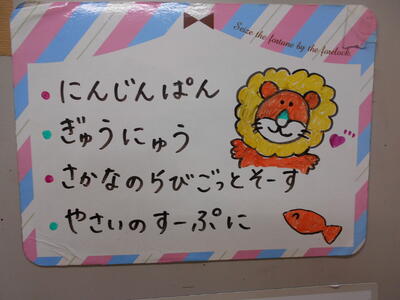 Seize the fortune by the forelock.
にんじんぱん
ぎゅうにゅう
さかなのらびごっとそーす
やさいのすーぷに